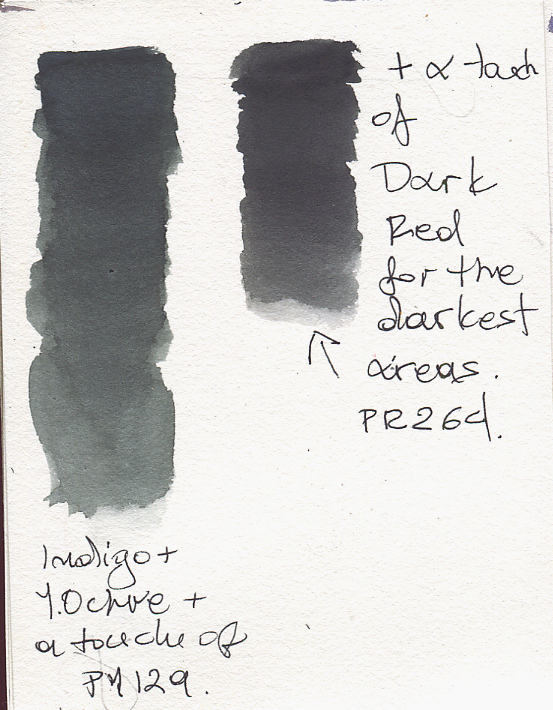 + a touch
of
Dark
Red
for the
darkest
areas.
PR264.
Indigo +
Y.Ochre +
a touche of
PY129.